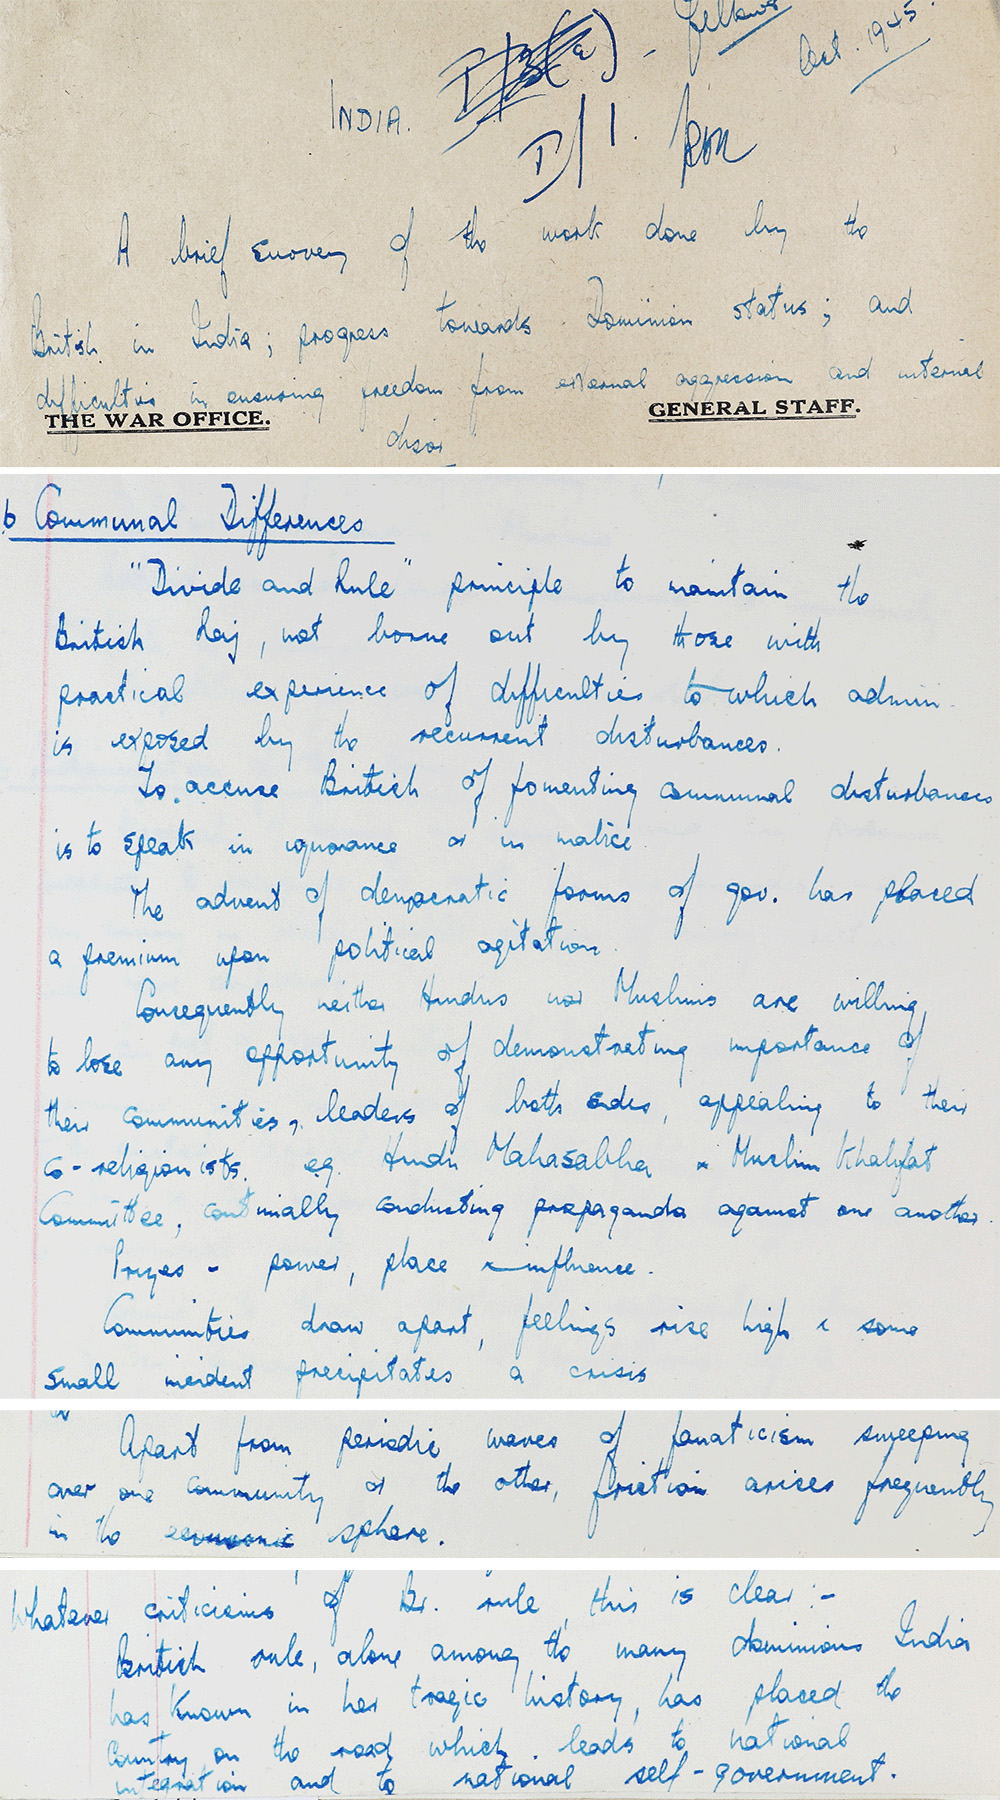 Oct. 1945.
INDIA.
D/1.
A brief survey of the work done by the
British in India; progress towards Dominion status; and
difficulties in ensuring freedom from external aggression and internal
THE WAR OFFICE. GENERAL STAFF.
disor
6 Communal Differences
"Divide and Rule" principle to maintain the
British Raj, not borne out by those with
practical experience of difficulties to which admin.
is exposed by the recurrent disturbances.
To accuse British of fomenting communal disturbances
is to speak in ignorance or in malice.
The advent of democratic forms of gov. has placed
a premium upon political agitation.
Consequently neither Hindus nor Muslims are willing
to lose any opportunity of demonstrating importance of
their communities, leaders of both sides, appealing to their
co-religionists. eg. Hindu Mahasabha & Muslim Khalifat
Committee, continually conducting propaganda against one another.
Prizes - power, place & influence.
Communities draw apart, feelings rise high & some
small incident precipitates a crisis
Apart from periodic waves of fanaticism sweeping
over one community or the other, friction arises frequently
in the economic sphere.
Whatever criticisms of Br. rule, this is clear:-
British rule, alone among the many dominions India
has known in her tragic history, has placed the
country on the road which leads to national
integration and to national self-government.